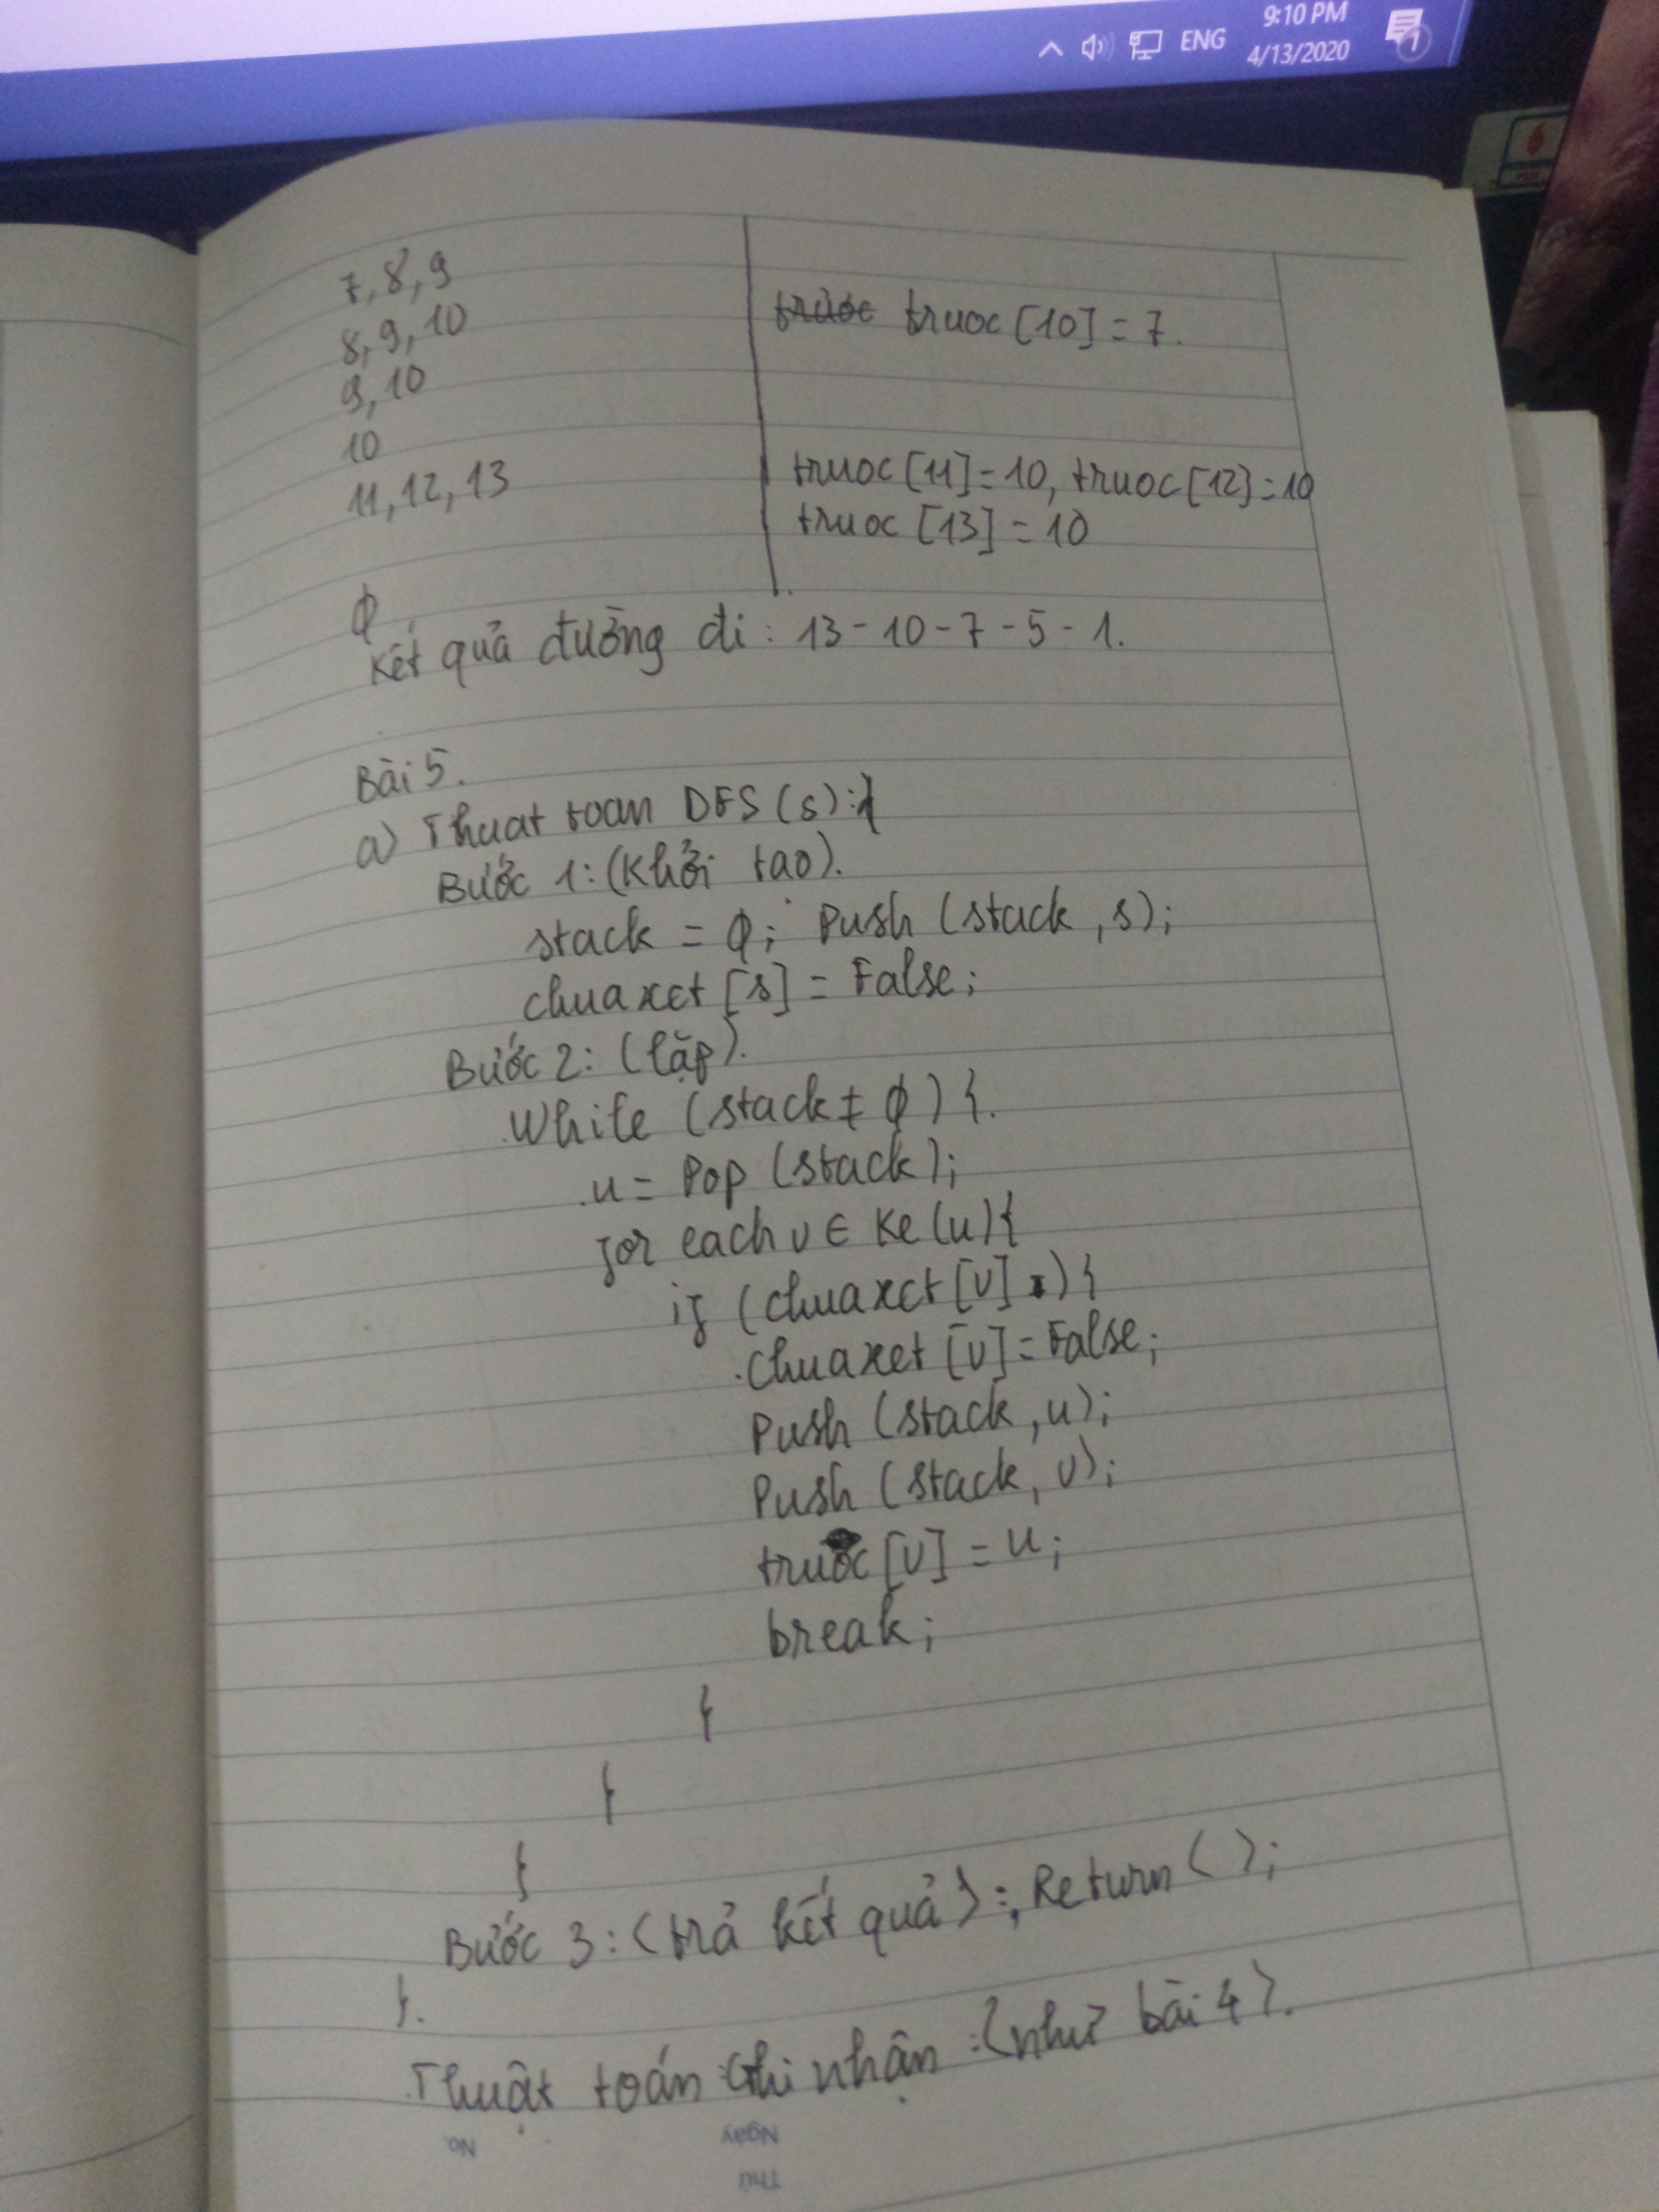 9:10 PM
ENG
4/13/2020
1
7, 8, 9
8, 9, 10
trước truoc [10] = 7.
9, 10
10
11, 12, 13
truoc [11] = 10, truoc [12] = 10
truoc [13] = 10
φ
Kết quả đường đi : 13 - 10 - 7 - 5 - 1.
Bài 5.
a) Thuat toan DFS (s) : {
Bước 1: (Khởi tạo).
stack = φ; Push (stack, s);
chuaxet [s] = False;
Bước 2: (lặp).
While (stack ≠ φ) {.
u = Pop (stack);
for each v ∈ Ke (u) {
if (chuaxet [v]) {
chuaxet [v] = False;
Push (stack, u);
Push (stack, v);
truoc [v] = u;
break;
}
}
}
Bước 3: (trả kết quả) :, Return ( );
}.
Thuật toán Ghi nhận : (như bài 4).
No.
Ngày
Thứ